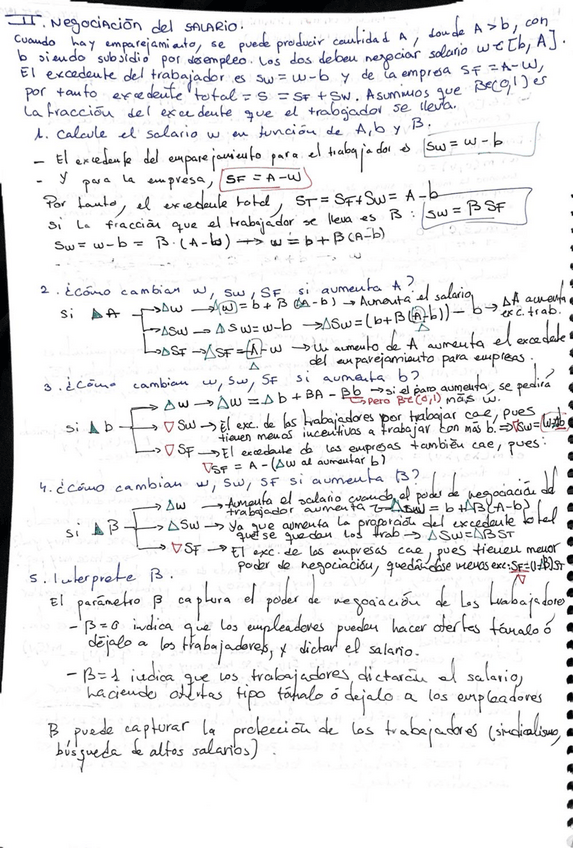 II. Negociación del SALARIO.
Cuando hay emparejamiento, se puede producir cantidad A, donde A>b, con
b siendo subsidio por desempleo. Los dos deben negociar salario w∈[b, A].
El excedente del trabajador es Sw=w-b y de la empresa SF=A-W,
por tanto excedente total = S = SF + SW. Asumimos que B∈(0,1) es
la fracción del excedente que el trabajador se lleva.
1. Calcule el salario w en función de A, b y B.
- El excedente del emparejamiento para el trabajador es Sw = w-b
- Y para la empresa, SF = A-W
Por tanto, el excedente total, ST = SF+SW = A-b
Si la fracción que el trabajador se lleva es B: Sw = B SF
Sw = w-b = B·(A-b) → w = b+B(A-b)
2. ¿Cómo cambian w, Sw, SF si aumenta A?
si ▲A → Δw → w = b+B(A-b) → Aumenta el salario
→ ΔSw → ΔSw = w-b → ΔSw = (b+B(A-b)) - b → ΔA aumenta exc. trab.
→ ΔSF → ΔSF = A-w → Un aumento de A aumenta el excedente
del emparejamiento para empresas.
3. ¿Cómo cambian w, Sw, SF si aumenta b?
si ▲b → Δw → Δw = Δb + BA - Bb → si el paro aumenta, se pedirá
pero B∈(0,1) más w.
→ ∇Sw → El exc. de los trabajadores por trabajar cae, pues
tienen menos incentivos a trabajar con más b. → ∇Sw =
→ ∇SF → El excedente de las empresas también cae, pues:
∇SF = A - (Δw al aumentar b)
4. ¿Cómo cambian w, Sw, SF si aumenta B?
si ▲B → Δw → Aumenta el salario cuando el poder de negociación del
trabajador aumenta → = b + ΔB(A-b)
→ ΔSw → Ya que aumenta la proporción del excedente total
que se quedan los trab → ΔSw = ΔBST
→ ∇SF → El exc. de las empresas cae, pues tienen menor
poder de negociación, quedándose menos exc: SF=(1-B)ST
5. Interprete B.
El parámetro B captura el poder de negociación de los trabajadores
- B=0 indica que los empleadores pueden hacer ofertas tómalo ó
déjalo a los trabajadores, y dictar el salario.
- B=1 indica que los trabajadores dictarán el salario,
haciendo ofertas tipo tómalo ó dejalo a los empleadores
B puede capturar la protección de los trabajadores (sindicalismo,
búsqueda de altos salarios).